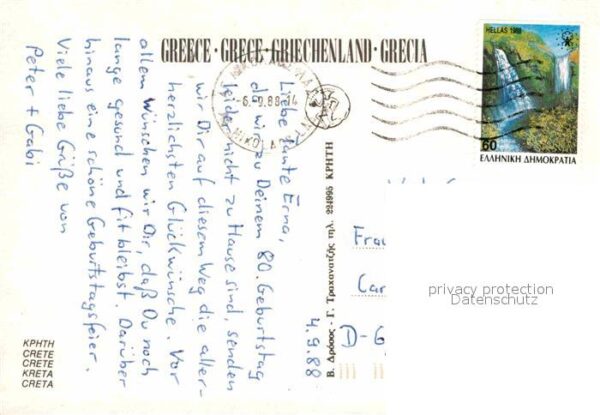 GREECE · GRECE · GRIECHENLAND · GRECIA
HELLAS 1988
60
ΕΛΛΗΝΙΚΗ ΔΗΜΟΚΡΑΤΙΑ
-6.-9.88-14
ΝΙΚΟΛΑΟΣ
4.9.88
Liebe Tante Erna,
da wir zu Deinem 80. Geburtstag
leider nicht zu Hause sind, senden
wir Dir auf diesem Weg die aller-
herzlichsten Glückwünsche. Vor
allem wünschen wir Dir, daß Du noch
lange gesund und fit bleibst. Darüber
hinaus eine schöne Geburtstagsfeier.
Viele liebe Grüße von
Peter + Gabi
Β. Δρόσος - Γ. Τραχανατζής τηλ. 224995 ΚΡΗΤΗ
Frau
Car
D-6
privacy protection
Datenschutz
ΚΡΗΤΗ
CRETE
CRETE
KRETA
CRETA